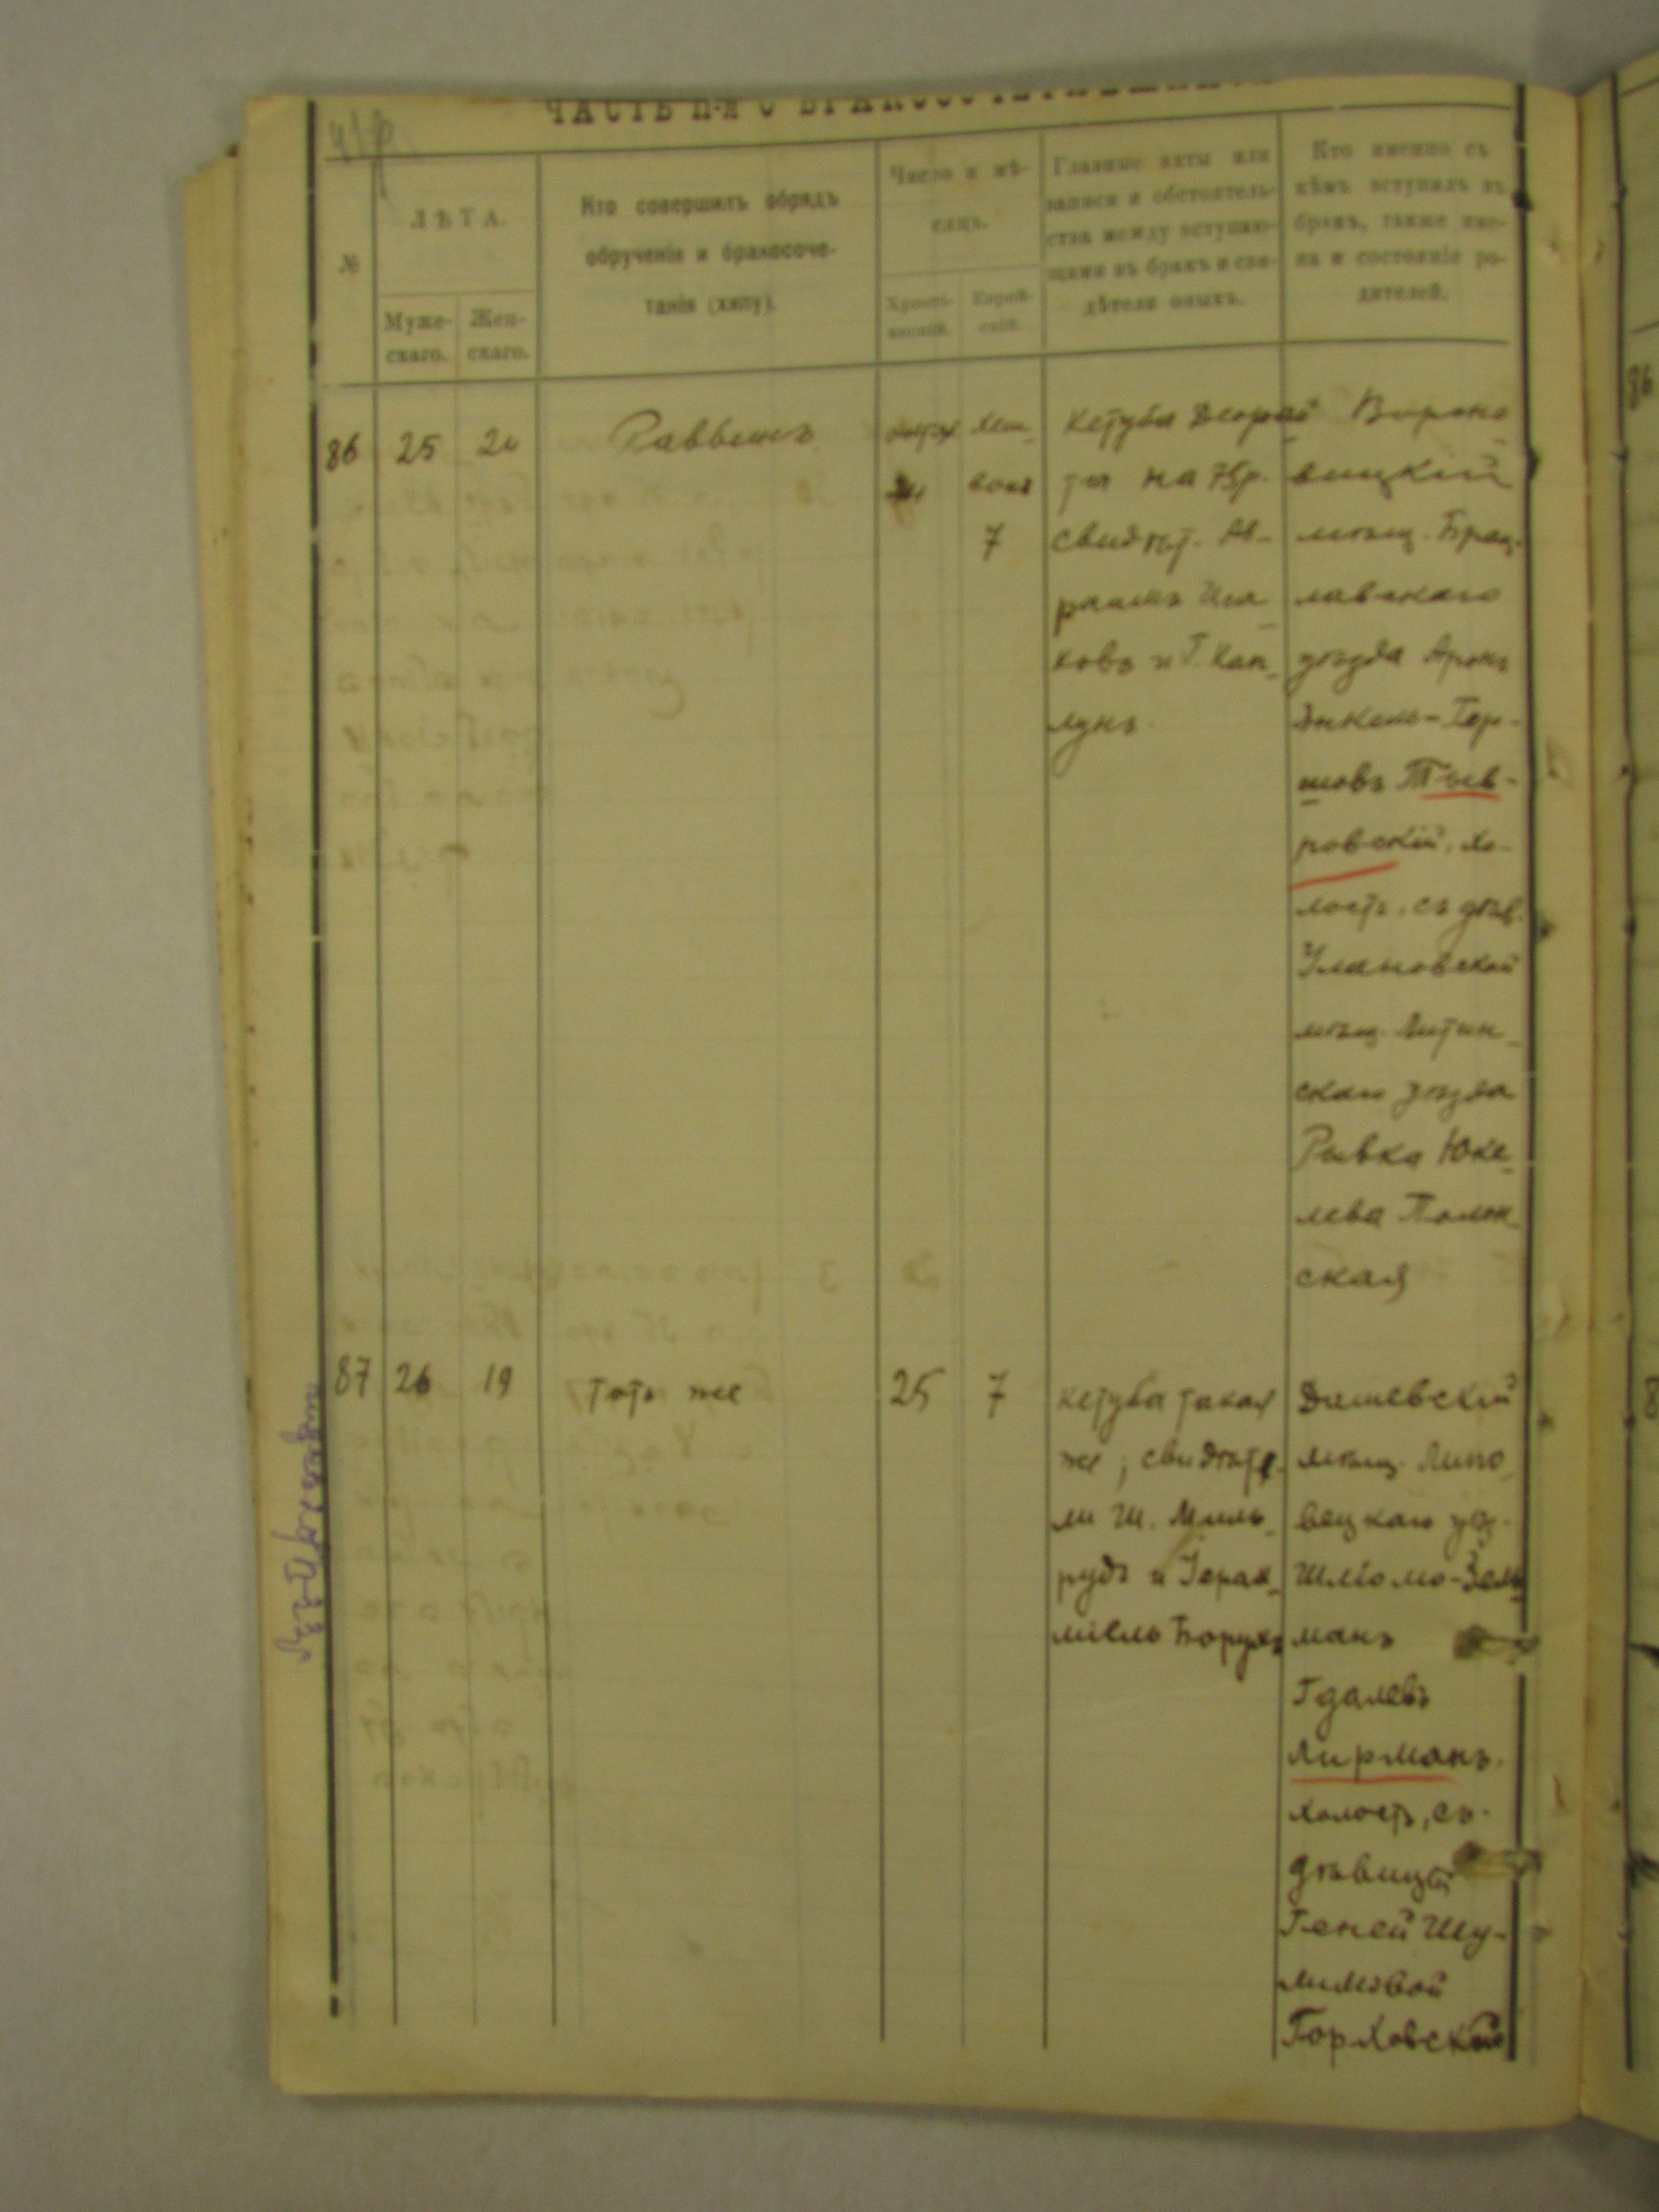 ЧАСТЬ II-я О БРАКОСОЧЕТАВШИХСЯ
№
ЛѢТА.
Муже-
скаго.
Жен-
скаго.
Кто совершилъ обрядъ
обрученія и бракосоче-
танія (хипу).
Число и мѣ-
сяцъ.
Христі-
анскій.
Еврей-
скій.
Главные акты или
записи и обстоятель-
ства между вступаю-
щими въ бракъ и сви-
дѣтели оныхъ.
Кто именно съ
кѣмъ вступилъ въ
бракъ, также име-
на и состояніе ро-
дителей.
86
25
20
Раввинъ
Хеш-
вонъ
7
Кетуба Деорай
та на 75р.
свидѣт. Ав-
рамъ Иса-
ковъ и Г. Кап-
лунъ.
Вороно-
вицкій
мѣщ. Брац-
лавскаго
уѣзда Аронъ
Янкель-Гер-
шовъ Тыв-
ровскій, хо-
лостъ, съ дѣв.
Улановской
мѣщ. Литин-
скаго уѣзда
Рывка Юке-
лева Полон-
ская
87
26
19
Тотъ же
25
7
Кетуба такая
же, свидѣте-
ли Ш. Миль-
рудъ и Іерах-
міель Борухъ
Дашевскій
мѣщ. Липо-
вецкаго уѣз.
Шліомо-Зель-
манъ
Гдалевъ
Лирманъ.
холостъ, съ
дѣвицей
Геней Шу-
лимовой
Горховской
86
8